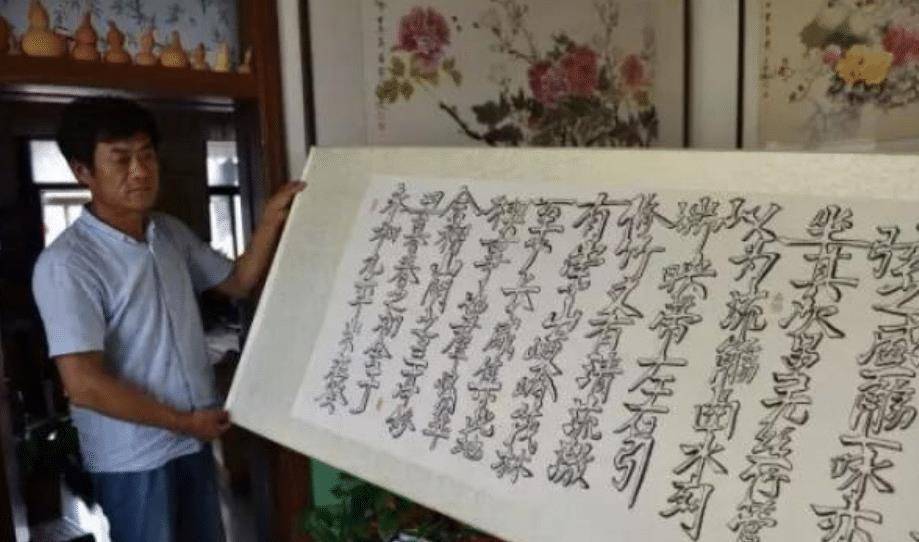 永和九年岁在癸
丑暮春之初会于
会稽山阴之兰亭修
禊事也群贤毕
至少长咸集此地
有崇山峻岭茂林
修竹又有清流激
湍映带左右引
以为流觞曲水列
坐其次虽无丝竹管
弦之盛一觞一咏亦